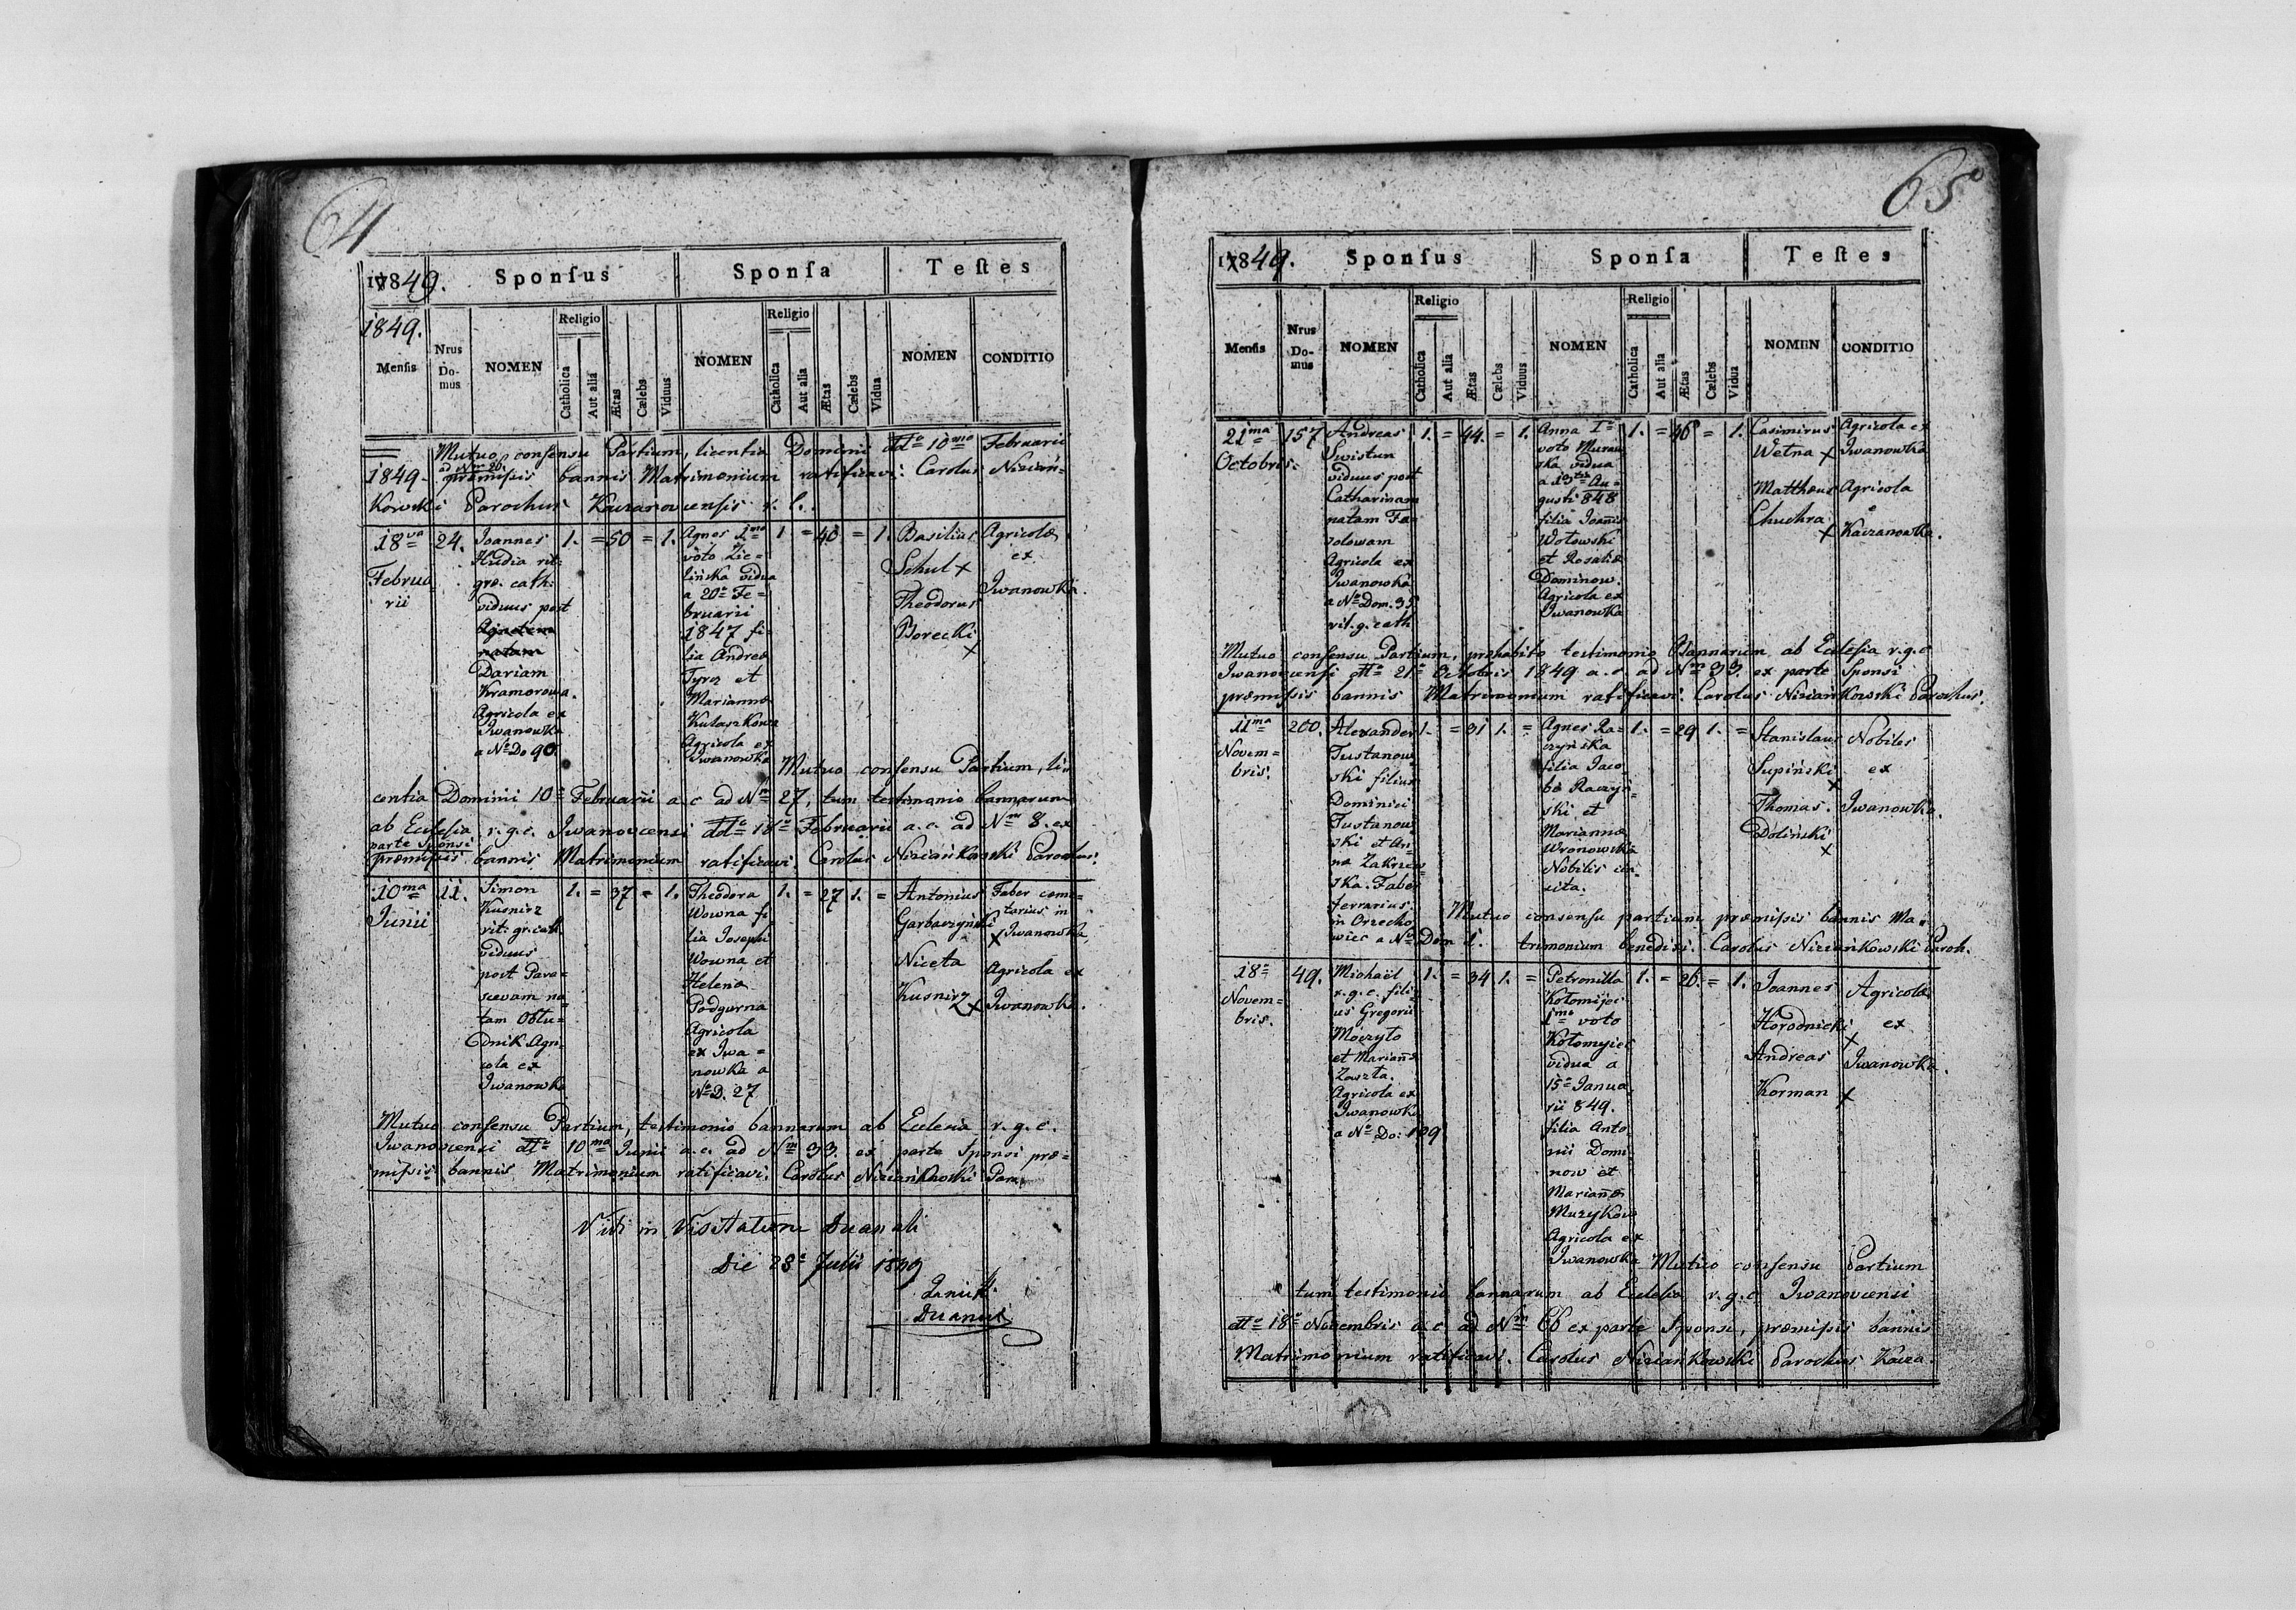 64
17849. Sponſus Sponſa Teſtes
1849.
Menſis
Nrus Do-mus
NOMEN
Religio
Catholica
Aut alia
Ætas
Cælebs
Viduus
NOMEN
Religio
Catholica
Aut alia
Ætas
Cælebs
Vidua
NOMEN
CONDITIO
1849-
Mutuo consensu Partium, licentia Domini ddo 10ma Februarii
ad Nm 26.
præmissis bannis Matrimonium ratificavi: Carolus Niziań-
kowski Parochus Kaczanovcensis r. l.
18va
Februa
rii
24.
Joannes
Hudia rit:
græ. cath:
viduus post
Agnetem
natam
Dariam
Kramorowa.
Agricola ex
Iwanowka
a No Do 90.
1. = 50 = 1.
Agnes 1mo
voto Zie-
lińska vidua
a 20a Fe-
bruarii
1847 fi-
lia Andreæ
Tyroz et
Mariannæ
Kułaszkowa
Agricola ex
Iwanowka
1 = 40 = 1.
Basilius
Schul x
Theodorus
Borecki
x
Agricolæ
ex
Iwanowka.
Mutuo consensu Partium, li-
centia Domini 10a Februarii a.c ad Nm 27, tum testimonio bannarum
ab Ecclesia r.g.c. Iwanovcensi ddo 18a Februarii a.c. ad Nm 8. ex
parte Sponsi
præmissis bannis Matrimonium ratificavi: Carolus Niziańkowski Parochus.
10ma
Junii
11.
Simon
Kusnirz
rit: gr. cath.
viduus
post Para-
scevam na-
tam Obłu-
dnik Agri-
cola ex
Iwanowka
1. = 37 = 1.
Theodora
Wowna fi
lia Josephi
Wowna et
Helena
Podgurna
Agricola
ex Iwa =
nowka a
No D. 27
1. = 27 1. =
Antonius
Garbarzyński
x
Niceta
Kusnirz
x
Faber
tarius in
Iwanowka,
Agricola ex
Iwanowka.
Mutuo consensu Partium, testimonio bannarum ab Eclesia r.g.c.
Iwanovcensi ddo 10ma Junii a.c. ad Nm 33. ex parte Sponsi præ-
missis bannis Matrimonium ratificavi: Carolus Niziańkowski Par.
Vidi in Visitatione Decanali
Die 28a Julii 1849
Decanus
65
17849. Sponſus Sponſa Teſtes
Menſis
Nrus Do-mus
NOMEN
Religio
Catholica
Aut alia
Ætas
Cælebs
Viduus
NOMEN
Religio
Catholica
Aut alia
Ætas
Cælebs
Vidua
NOMEN
CONDITIO
21ma
Octobris.
157
Andreas
Swistun
viduus post
Catharinam
natam Fe-
dolowam
Agricola ex
Iwanowka
a No Dom. 35
rit. g. cath
1. = 44. = 1.
Anna Io
voto Muraw
ska vidua
a 19ta Au-
gusti 848
filia Joannis
Wołowski
et Rosaliæ
Dominow.
Agricola ex
Iwanowka
1. = 46 = 1.
Casimirus
Wetna x
Matthæus
Chuchra
x
Agricola ex
Iwanowka
Agricola
e
Kaczanowka.
Mutuo consensu Partium, prohabito testimonio Bannarum ab Ecclesia r.g.c
Iwanovcensi ddo 21a Octobris 1849 a.c. ad Nm 33. ex parte Sponsi
præmissis bannis Matrimonium ratificavi: Carolus Niziańkowski Parochus.
11ma
Novem=
bris.
200.
Alexander
Tustanow
ski filius
Dominici
Tustanow
ski et An-
na Zakrzew
ska. Faber
ferrarius.
in Orzecho
wiec a No Dom 1.
1. = 31 1. =
Agnes Ra-
czyńska
filia Jaco
bi Raczyń-
ski et
Mariannæ
Wronowska
Nobilis
1. = 29 1. =
Stanislaus
Supiński
x
Thomas.
Doliński
x
Nobiles
ex
Iwanowka.
Mutuo consensu partium præmissis bannis Ma-
trimonium benedixi. Carolus Niziańkowski Paroh.
18a
Novem=
bris.
49.
Michaël
r.g.c. fili-
us Gregorii
Moczyło
et Mariannæ
Zaszta.
Agricola ex
Iwanowka
a No Do: 109
1. = 34 1. =
Petronilla
Kołomijec
1mo voto
Kołomyiec
vidua a
15a Janua
rii 849.
filia Anto-
nii Domi
now et
Mariannæ
Muzykow
Agricola ex
Iwanowka
1. = 26. = 1.
Joannes
Horodnicki
x
Andreas
Korman x
Agricolæ
ex
Iwanowka.
Mutuo consensu Partium
tum testimonii bannarum ab Ecclesia r.g.c. Iwanovcensi
ddo 18a Novembris a.c. ad Nm ex parte Sponsi, præmissis bannis
Matrimonium ratificavi. Carolus Niziańkowski Parochus Kacza.